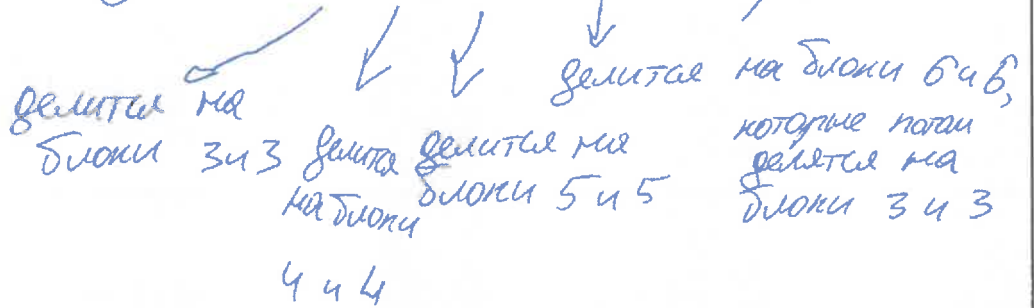 делится на
блоки 3 и 3
делится
на блоки
4 и 4
делится на
блоки 5 и 5
делится на блоки 6 и 6,
которые потом
делятся на
блоки 3 и 3